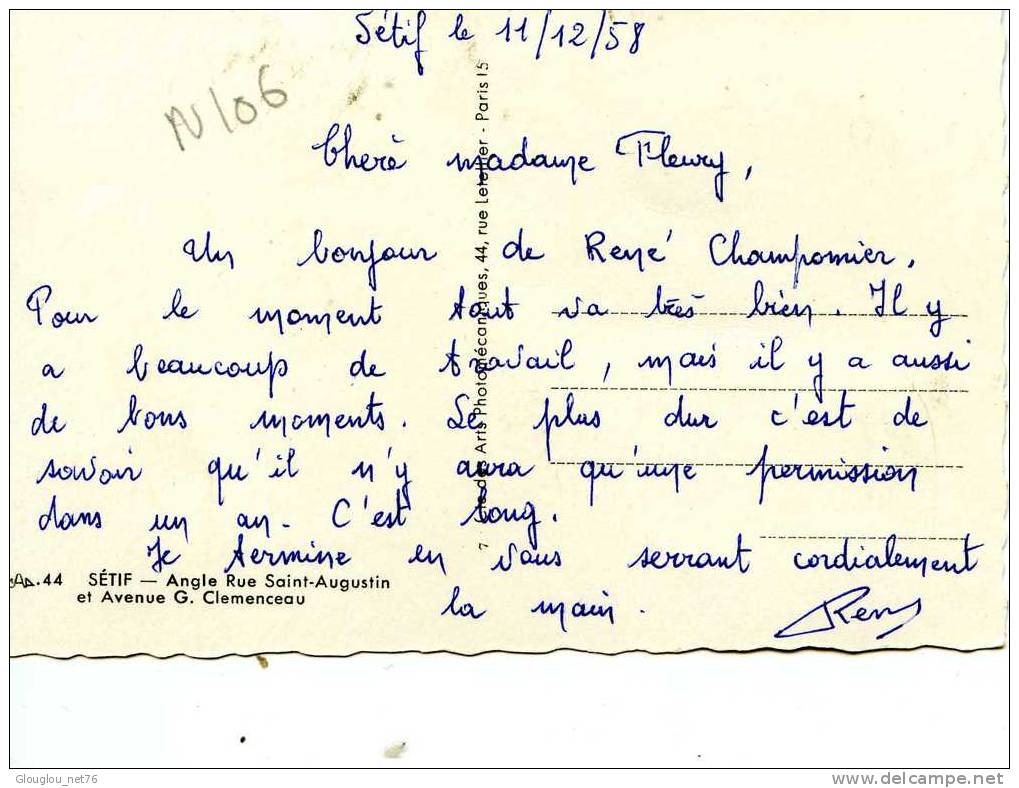 Sétif le 11/12/58
N/06
Cherè madame Fleury,
Un bonjour de René Champomier.
Pour le moment tout va très bien. Il y
a beaucoup de travail, mais il y a aussi
de bons moments. Le plus dur c'est de
savoir qu'il n'y aura qu'une permission
dans un an. C'est long.
Je termine en vous serrant cordialement
la main.
René
7 des Arts Photomécaniques, 44, rue Letellier - Paris 15
44 SÉTIF — Angle Rue Saint-Augustin
et Avenue G. Clemenceau
Glouglou_net76
delcampe.net